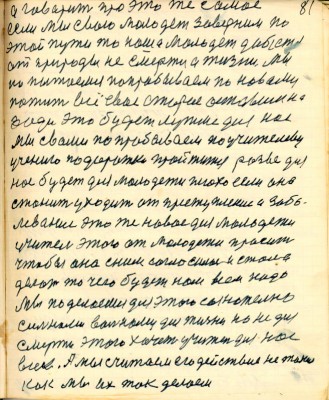 81
и говорит про это же самое
если мы свою молодежь заведем по
этой пути то наша молодежь добьется
от природы не смерти а жизни. Мы
по попробываем по новому
пожить всё свое старое оставим на
это будет лучше для нас
мы с вами попробываем по учителеву
учению по дорожке пройтися разве для
нас будет для молодежи плохо если она
станет уходить от преступление и забо-
левание это же новое для молодежи
учитель этого от молодежи просит
чтобы она с ним согласилась и стала
делать то чего будет нам всем надо
Мы поделаем для этого сознательно
для жизни но не для
смерти этого хочет учитель для нас
всех. А мы считаем его действие не таким
как мы их так делаем